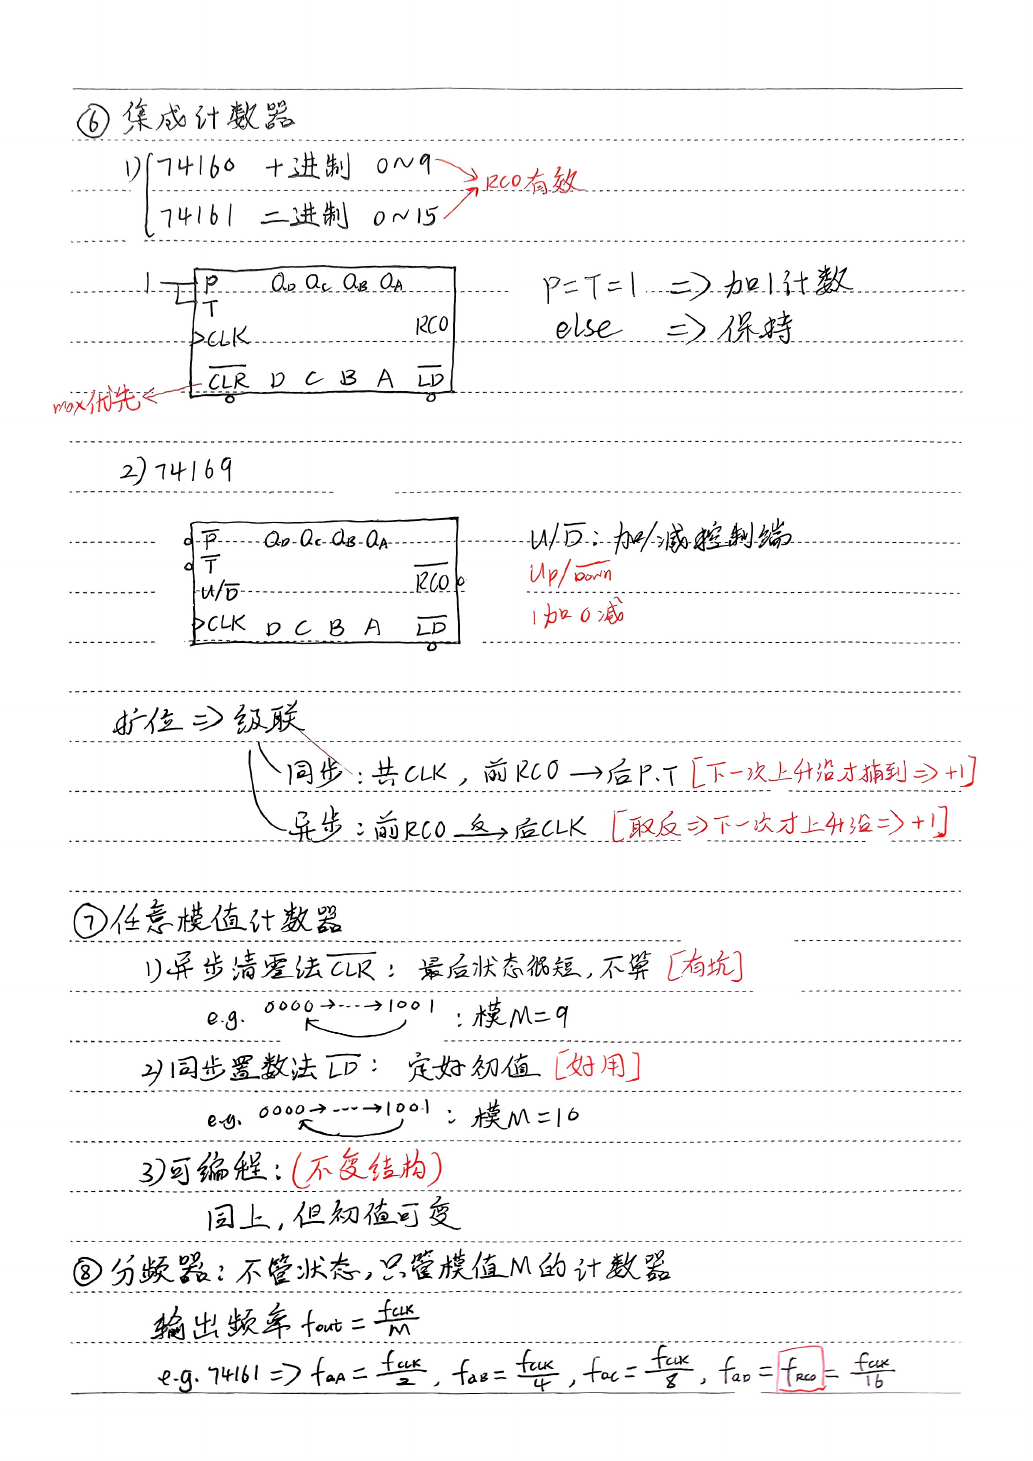 ⑥ 集成计数器
1) 74160 十进制 0~9
RCO有效
74161 二进制 0~15
1 P QD QC QB QA
T
RCO
CLK
CLR D C B A LD
max优先
P=T=1 => 加1计数
else => 保持
2) 74169
P QD QC QB QA
T
RCO
U/D
CLK D C B A LD
U/D: 加/减控制端
Up/Down
1加0减
扩位 => 级联
同步: 共CLK, 前RCO → 后P.T [下一次上升沿才捕到 => +1]
异步: 前RCO 反→ 后CLK [取反 => 下一次才上升沿 => +1]
⑦ 任意模值计数器
1) 异步清零法 CLR: 最后状态很短, 不算 [有坑]
e.g. 0000→---→1001 : 模M=9
2) 同步置数法 LD: 定好初值 [好用]
e.g. 0000→---→1001 : 模M=10
3) 可编程: (不变结构)
同上, 但初值可变
⑧ 分频器: 不管状态, 只管模值M的计数器
输出频率 fout = fCLK/M
e.g. 74161 => fQA = fCLK/2, fQB = fCLK/4, fQC = fCLK/8, fQD = fRCO = fCLK/16